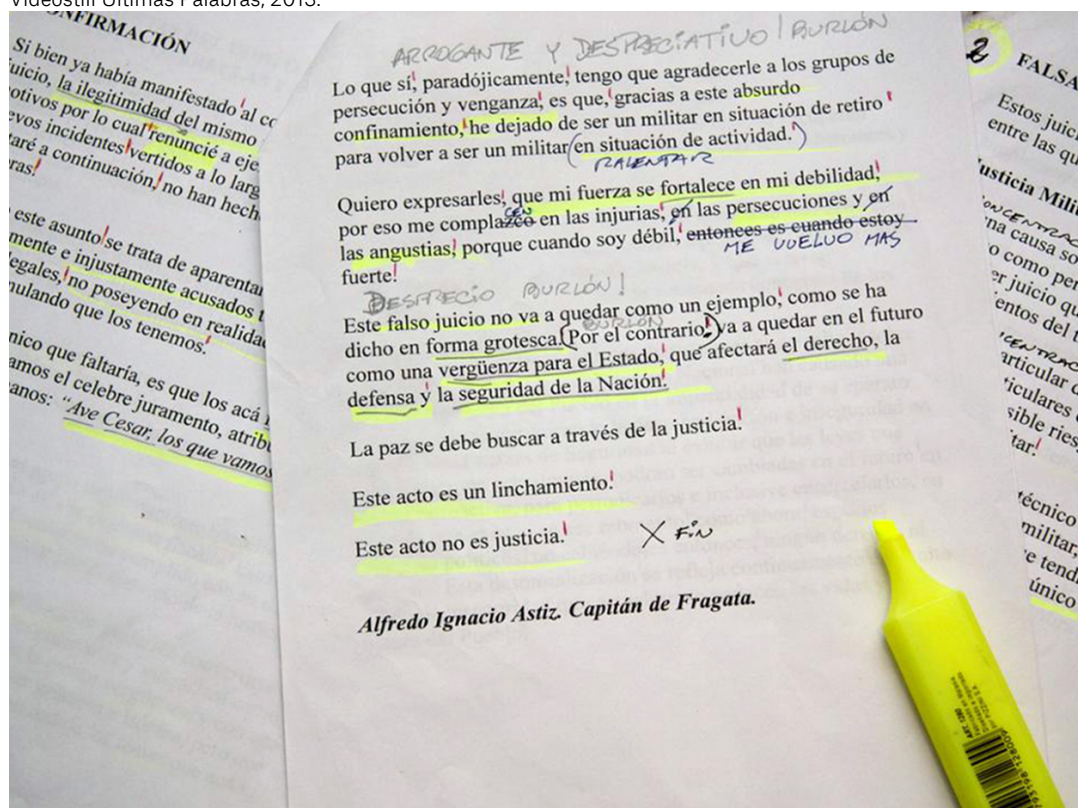 Videostill Últimas Palabras, 2015.
CONFIRMACIÓN
Si bien ya había manifestado al
juicio, la ilegitimidad del mismo
motivos por lo cual renuncié a eje
evos incidentes vertidos a lo larg
taré a continuación, no han hech
ras!
este asunto se trata de aparentar
mente e injustamente acusados
legales, no poseyendo en realida
mulando que los tenemos.
nico que faltaría, es que los acá
amos el celebre juramento, atrib
anos: "Ave Cesar, los que vamos
ARROGANTE Y DESPRECIATIVO / BURLÓN
Lo que sí, paradójicamente, tengo que agradecerle a los grupos de
persecución y venganza, es que, gracias a este absurdo
confinamiento, he dejado de ser un militar en situación de retiro
para volver a ser un militar (en situación de actividad.)
RALENTAR
Quiero expresarles, que mi fuerza se fortalece en mi debilidad,
CEN
por eso me complazco en las injurias, en las persecuciones y en
las angustias, porque cuando soy débil, entonces es cuando estoy
ME VUELVO MAS
fuerte!
DESPRECIO BURLÓN!
Este falso juicio no va a quedar como un ejemplo, como se ha
BURLÓN
dicho en forma grotesca. (Por el contrario,) va a quedar en el futuro
como una vergüenza para el Estado, que afectará el derecho, la
defensa y la seguridad de la Nación.
La paz se debe buscar a través de la justicia.
Este acto es un linchamiento.
Este acto no es justicia.
X FIN
Alfredo Ignacio Astiz. Capitán de Fragata.
2
FALSA
Estos juici
entre las qu
usticia Mili
CONCENTRAC
na causa so
o como per
er juicio qu
entos del t
CENTRAC
articular
ticulares
sible ries
tar.
técnico
militar,
e tend
único
ART. 1280